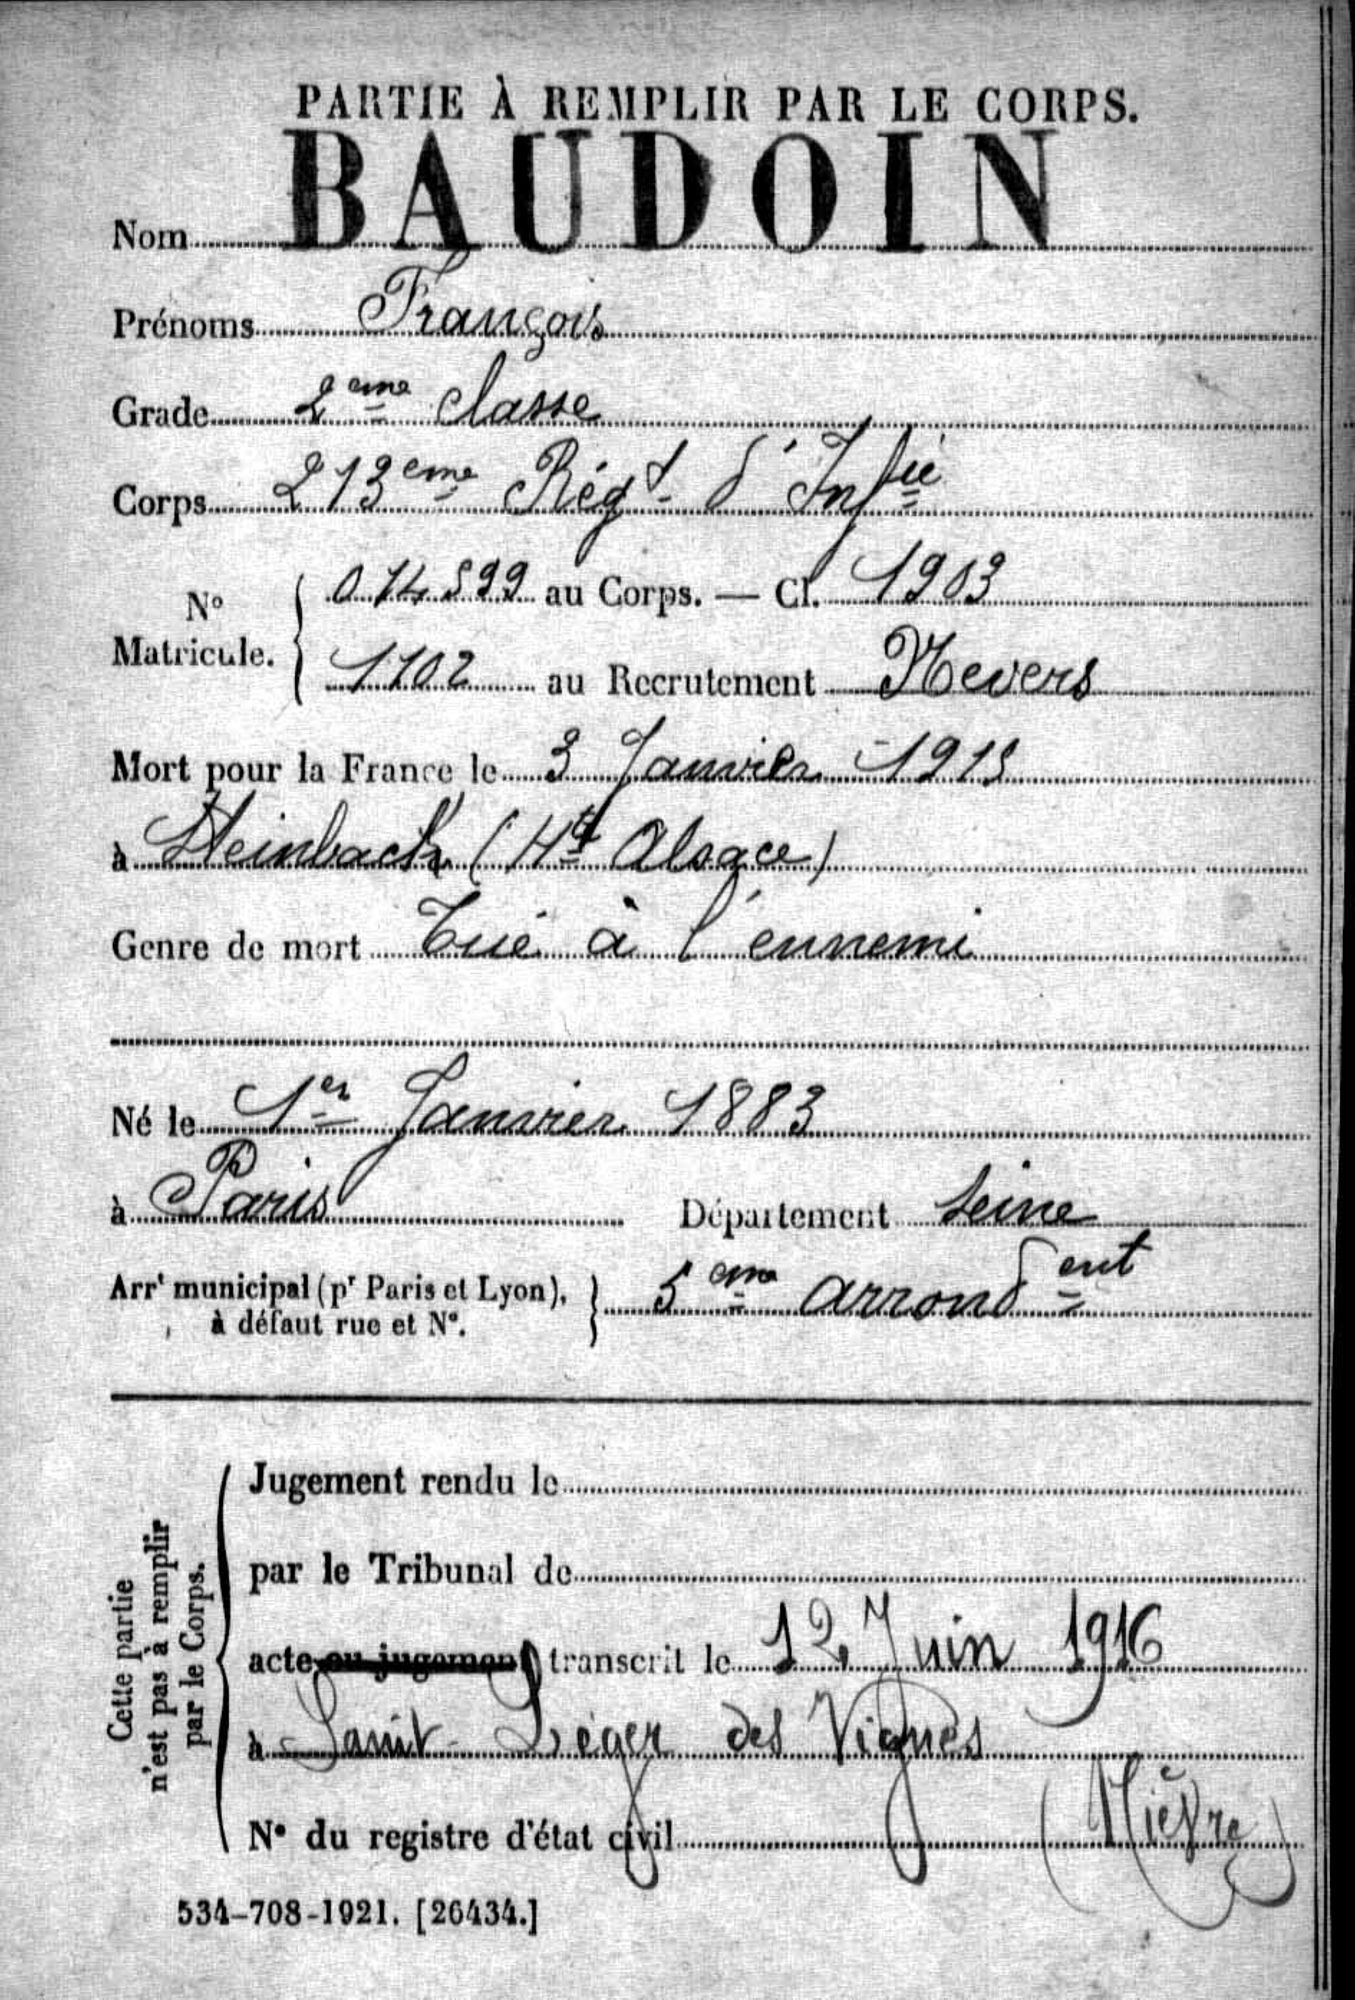 PARTIE À REMPLIR PAR LE CORPS.
Nom BAUDOIN
Prénoms François
Grade 2eme classe
Corps 213eme Régt d'Infie
N° Matricule. 014599 au Corps. — Cl. 1903
1102 au Recrutement Nevers
Mort pour la France le 3 Janvier 1915
à Steinbach (Hte Alsace)
Genre de mort Tué à l'ennemi
Né le 1er Janvier 1883
à Paris Département Seine
Arrt municipal (pr Paris et Lyon), à défaut rue et N°. 5eme arrondent
Cette partie n'est pas à remplir par le Corps.
Jugement rendu le
par le Tribunal de
acte ou jugement transcrit le 12 Juin 1916
à Saint Léger des Vignes
N° du registre d'état civil (Nièvre)
534-708-1921. [26434.]